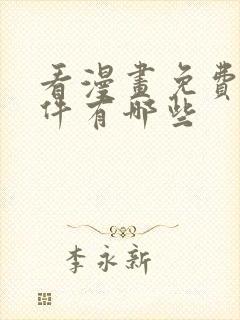 看漫畫免費
件有哪些
李永新